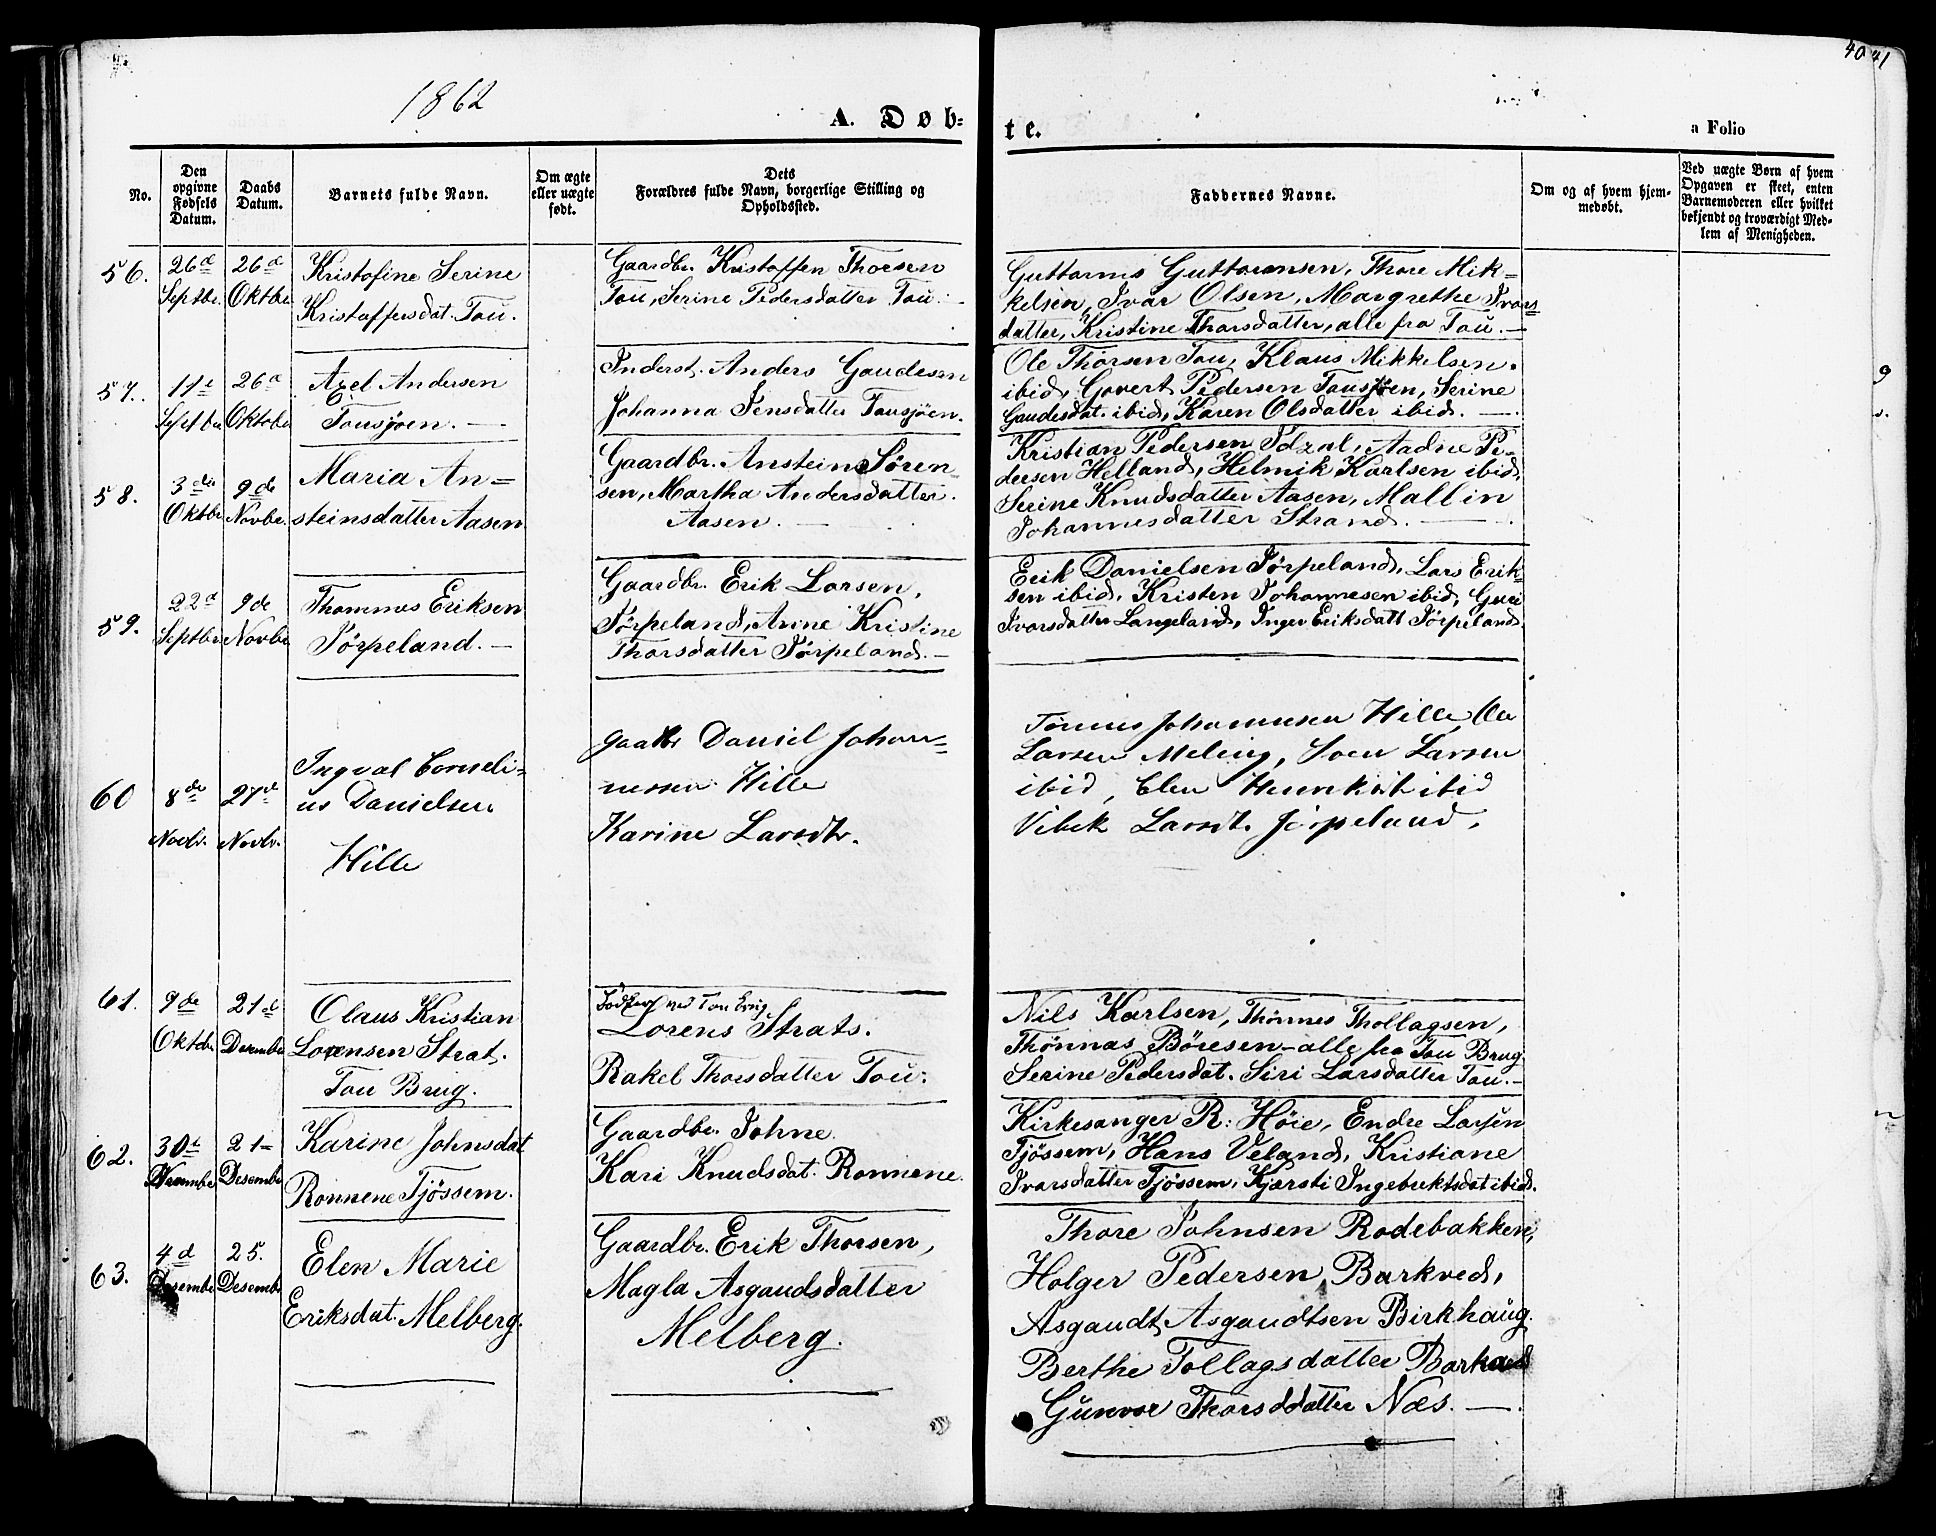 1862
40 41
A. Døb-
te.
a Folio
No.
Den opgivne Fødsels Datum.
Daabs Datum.
Barnets fulde Navn.
Om ægte eller uægte født.
Dets Forældres fulde Navn, borgerlige Stilling og Opholdssted.
Faddernes Navne.
Om og af hvem hjem-
medøbt.
Ved uægte Børn af hvem
Opgaven er skeet, enten
Barnemoderen eller hvilket
bekjendt og troværdigt Med-
lem af Menigheden.
56.
26d
Septbr.
26d
Oktbr.
Kristofine Serine
Kristoffersdat. Tou.
Gaardbr. Kristoffen Thorsen
Tou, Serine Pedersdatter Tou.
Guttorms Guttormsen, Thore Mik=
kelsen, Ivar Olsen, Margrethe Ivars
datter, Kristine Thorsdatter, alle fra Tou.
57.
11t
Septbr
26d
Oktober
Axel Andersen
Tousjøen.
Inderst. Anders Gaudesen
Johanna Jensdatter Tousjøen.
Ole Thorsen Tou, Klaus Mikkelsen
ibid, Govert Pedersen Tousjøen, Serine
Gaudesdat. ibid, Karen Olsdatter ibid.
58.
3die
Oktbr.
9de
Novbr.
Maria An=
steinsdatter Aasen
Gaardbr. Anstein Søren=
sen, Martha Andersdatter
Aasen.
Kristian Pedersen Idzal, Aadne Pe=
dersen Helland, Helmik Karlsen ibid,
Serine Knudsdatter Aasen, Mallin
Johannesdatter Strand.
59.
22d
Septbr
9de
Novbr.
Thommes Eriksen
Jørpeland.
Gaardbr. Erik Larsen,
Jørpeland, Anne Kristine
Thorsdatter Jørpeland.
Erik Danielsen Jørpeland, Lars Erik=
sen ibid, Kristen Johannesen ibid, Guri
Ivarsdatter Langeland, Inger Eriksdatt Jørpeland.
60
8de
Novbr.
27de
Novbr.
Ingval Corneli=
us Danielsen
Hille
Gaardbr Daniel Johan=
nessen Hille
Karine Larsdtr.
Tønnes Johannesen Hille, Ole
Larsen Meling, Soen Larsen
ibid, Elen ibid
Vibek Larsdt. Jørpeland,
61.
9de
Oktbr
21de
Desember
Olaus Kristian
Lorensen Strat.
Tou Brug.
ved Tou Brug
Lorens Strats.
Rakel Thorsdatter Tou.
Nils Karlsen, Thønnes Thollagsen,
Thønnas Børesen - alle fra Tou Brug
Serine Pedersdat. Siri Larsdatter Tou.
62.
30t
November
21=
Desember
Karine Johnsdat
Ronnene Tjøssem.
Gaardbr. Johne
Kari Knudsdat. Ronnene.
Kirkesanger R. Høie, Endre Larsen
Tjøssem, Hans Veland, Kristiane
Ivarsdatter Tjøssem, Kjersti Ingebriktsdat ibid.
63.
4d
Desember
25.
Desember
Elen Marie
Eriksdat. Melberg.
Gaardbr. Erik Thorsen,
Magla Asgaudsdatter
Melberg.
Thore Johnsen Rodebakken,
Holger Pedersen Barkved,
Asgaudt Asgaudtsen Birkhaug.
Berthe Tollagsdatter Barkved
Gunvor Thorsdatter Næs.